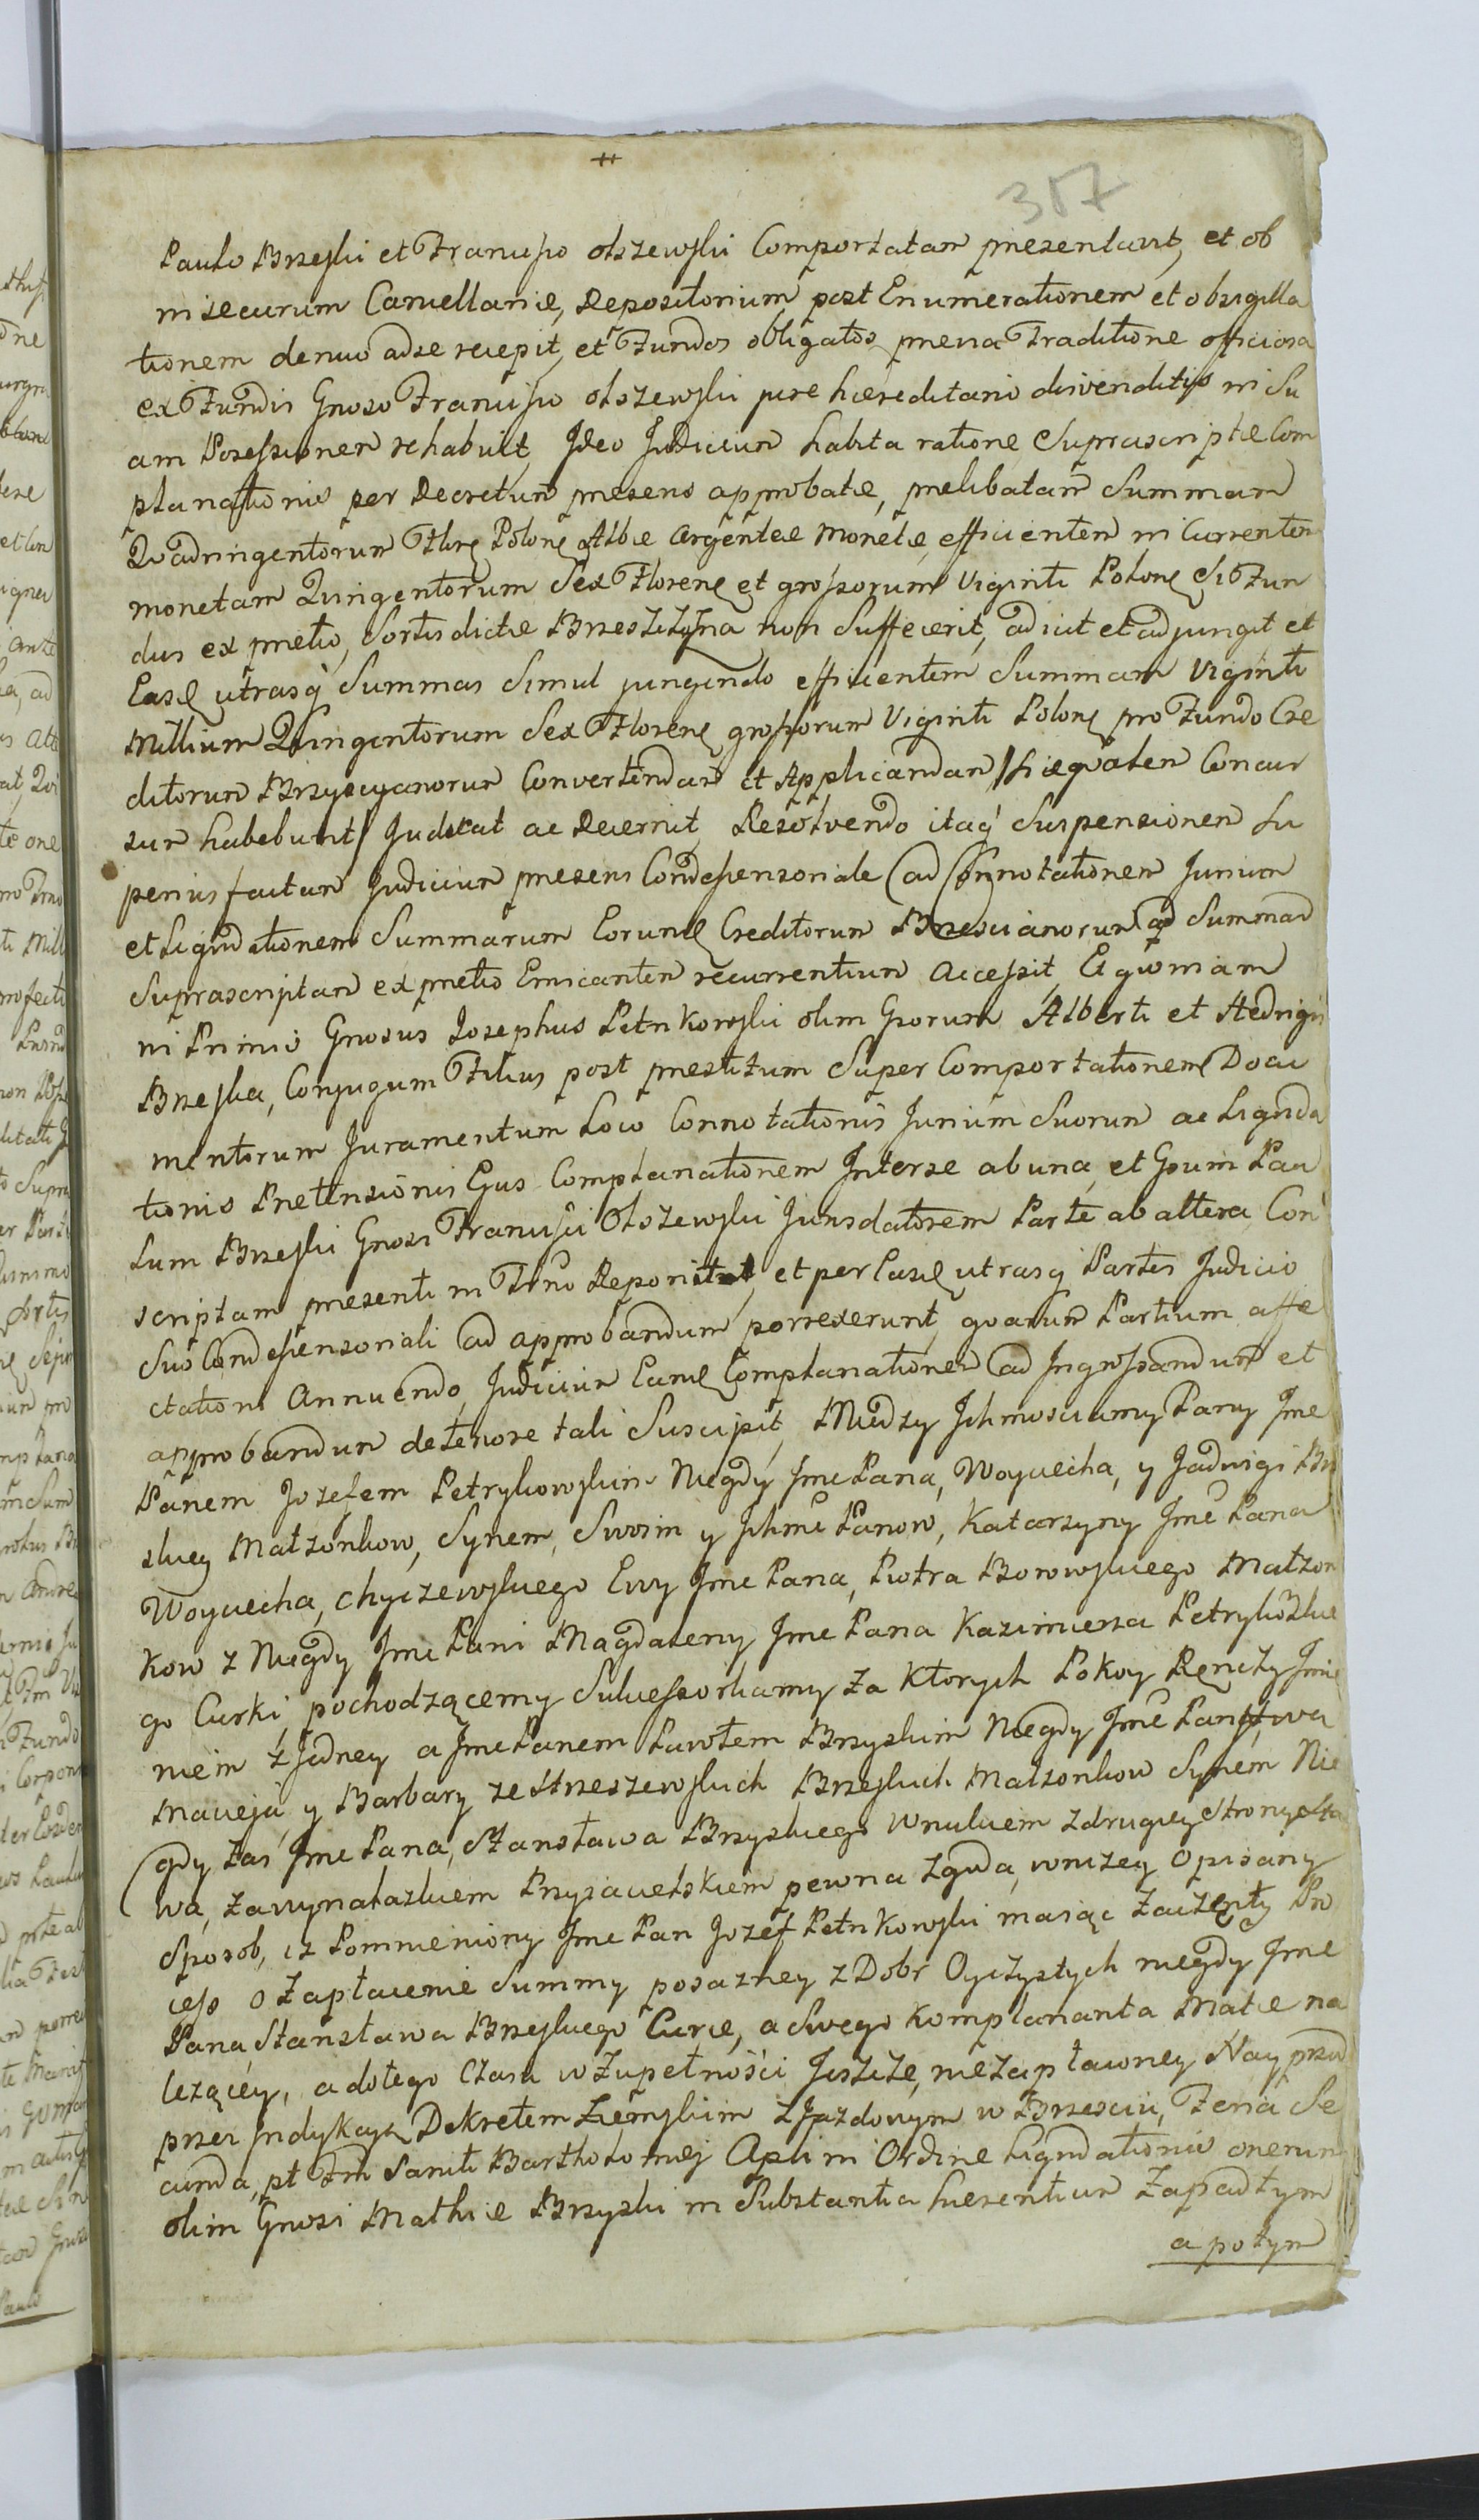 357
Paulo Brzeski et Francisco Olszewski Comportatam presentavit, et ob
in securum Cancellariæ, Repositorium post Enumerationem et obsigilla
tionem denuo ad se recepit, et Fundos obligatos previa Traditione officiosa
ex Fundis Gnoso Francisco Olszewski jure hæreditario divenditis in Su
am Possessionem rehabuit, Ideo Judicium habita ratione Suprascriptæ Com
planationis per Decretum presens approbatæ, prelibatam Summam
Quadringentorum Flor. Polon. Albæ Argenteæ Monetæ, efficientem in Currentem
monetam Quingentorum Sex Floren. et grossorum Viginti Polon. Si Fun
dus ex pretio, Sortis dictæ Brzeszczyzna non Suffecerit, adicit et adjungit et
Easd. utrasq. Summas Simul jungendo efficientem Summam Viginti
Millium Quingentorum Sex Floren. grossorum Viginti Polon. pro Fundo Cre
ditorum Brzyscyanorum Convertendam et Applicandam / hi æqualem Concur
sum habebunt / Judicat ac Decernit, Resolvendo itaq. Suspensionem Su
perius factam Judicium presens Condescensoriale ad Connotationem Jurium
et Liquidationem Summarum Eorund. Creditorum Brzescianorum ad Summam
Suprascriptam ex pretio Emicantem recurrentium accessit, Et quoniam
in Primis Gnosus Josephus Petrikowski olim Gsorum Alberti et Hedvigis
Brzeska, Conjugum Filius post prestitum Super Comportationem Docu
mentorum Juramentum Loco Connotationis Jurium Suorum ac Liquida
tionis Pretensionis Ejus Complanationem Inter se ab una, et Gsum Pau
lum Brzeski Gnosi Francisci Olszewski Jurisdatorem Parte ab altera Con
scriptam presenti in Tmno Reponit, et per Easd. utrasq. Partes Judicio
Suo Condescensoriali ad approbandum porrexerunt, quarum Partium affe
ctationi Annuendo, Judicium Eand. Complanationem ad Ingrossandum et
approbandum de tenore tali Suscipit, Między Ichmosciamy Pany Jme
Panem Jozefem Petrykowskim Niegdy Jme Pana, Woyciecha, y Jadwigi Brz
skiey Małzonkow, Synem, Swoim y Ichme Panow, Katarzyny Jme Pana
Woyciecha, Chyczewskiego Ewy Jme Pana, Piotra Borowskiego Małzon
kow z Niegdy Jme Pani Magdaleny Jme Pana Kazimierza Petrykowskie
go Curki pochodzącemy Sukcessorkamy za ktorych Pokoy Ręczy Jmie
niem z Jedney a Jme Panem Pawłem Brzyskim Niegdy Jme Państwa
Macieja, y Barbary ze Strzeszewskich Brzeskich Małzonkow Synem Nie
gdy zas Jme Pana, Stanisława Brzyskiego Wnukiem z drugiey Strony Sta
wa, zawynalazkiem Przyiacielskiem pewna zgoda, wnizey Opisany
Sposob, iz Pomnieniony Jme Pan Jozef Petrikowski maiąc zaczęnty Pro
cess o Zapłacenie Summy posazney z Dobr Oyczystych niegdy Jme
Pana, Stanisława Brzeskiego Curce, a Swego Komplananta Matce na
lezącey, a dotego czasu w Zupełności Jeszcze, nie Zapłaconey Nayprzod
przez Indykcyą Dekretem Ziemskim Zjazdowym w Brzesciu, Feria Se
cunda, pt Fm Sancti Bartholomej Apli in Ordine Liquidationis onerum
olim Gnosi Mathiæ Brzyski in Substantia hærentium Zapadłym
a potym